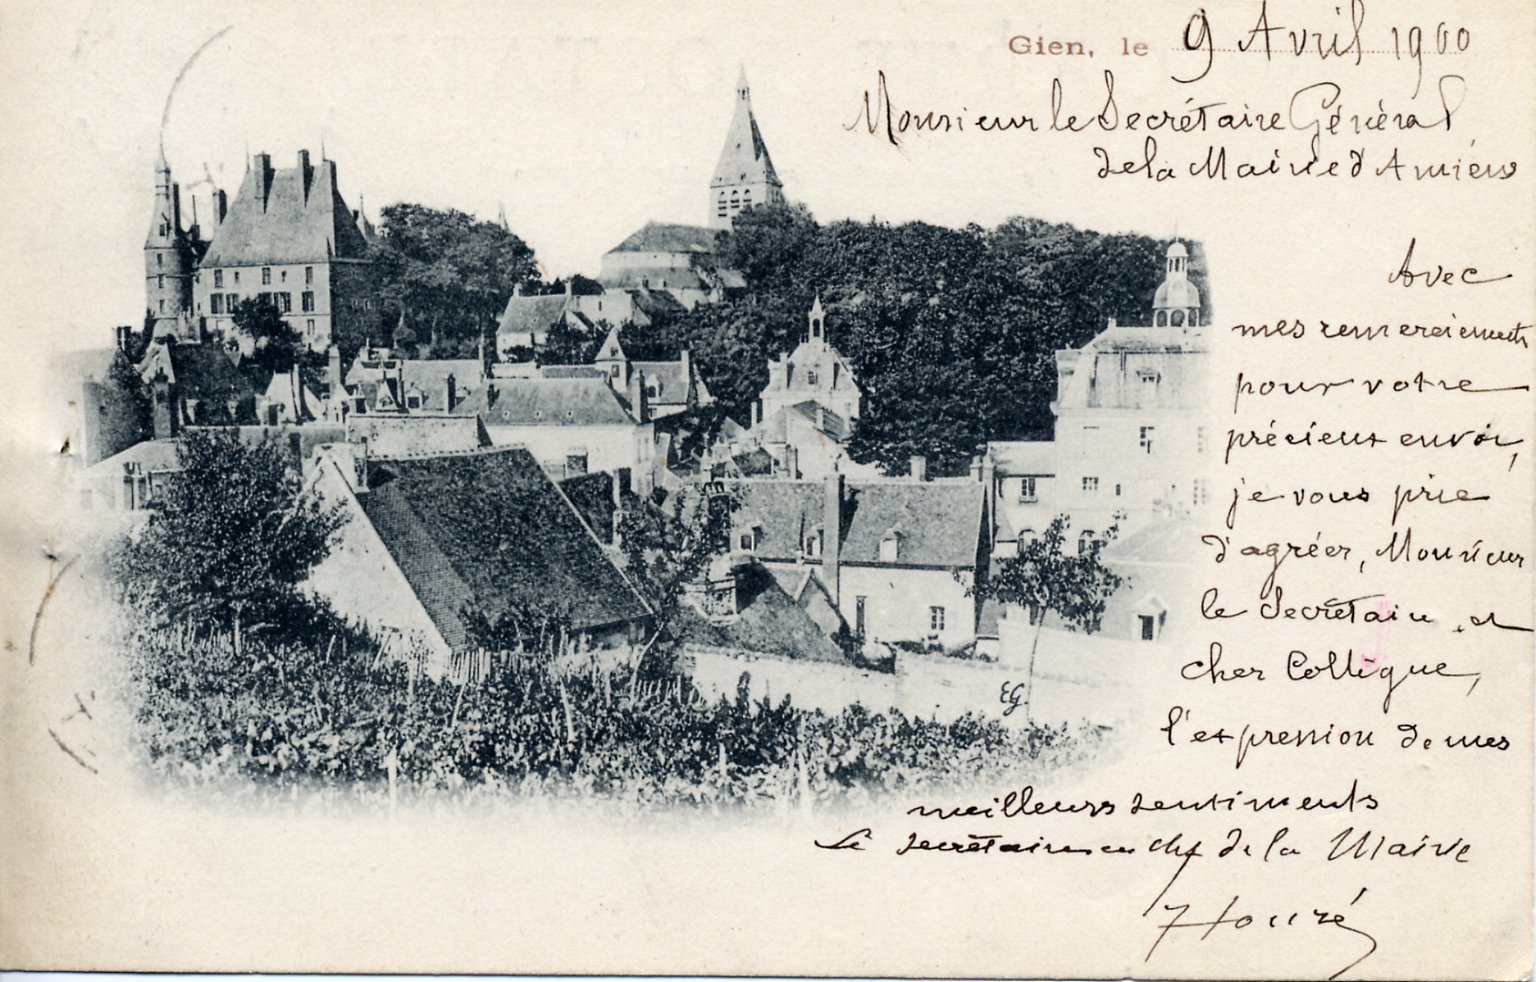 Gien, le 9 Avril 1900
Monsieur le Secrétaire Général
de la Mairie d'Amiens
Avec
mes remerciements
pour votre
précieux envoi,
je vous prie
d'agréer, Monsieur
le Secrétaire et
cher Collègue,
l'expression de mes
meilleurs sentiments
Le secrétaire en chef de la Mairie
EG